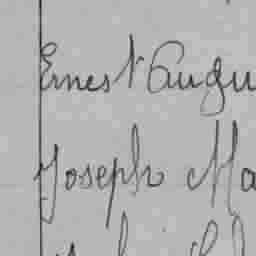 Ernest Augu
Joseph Ma